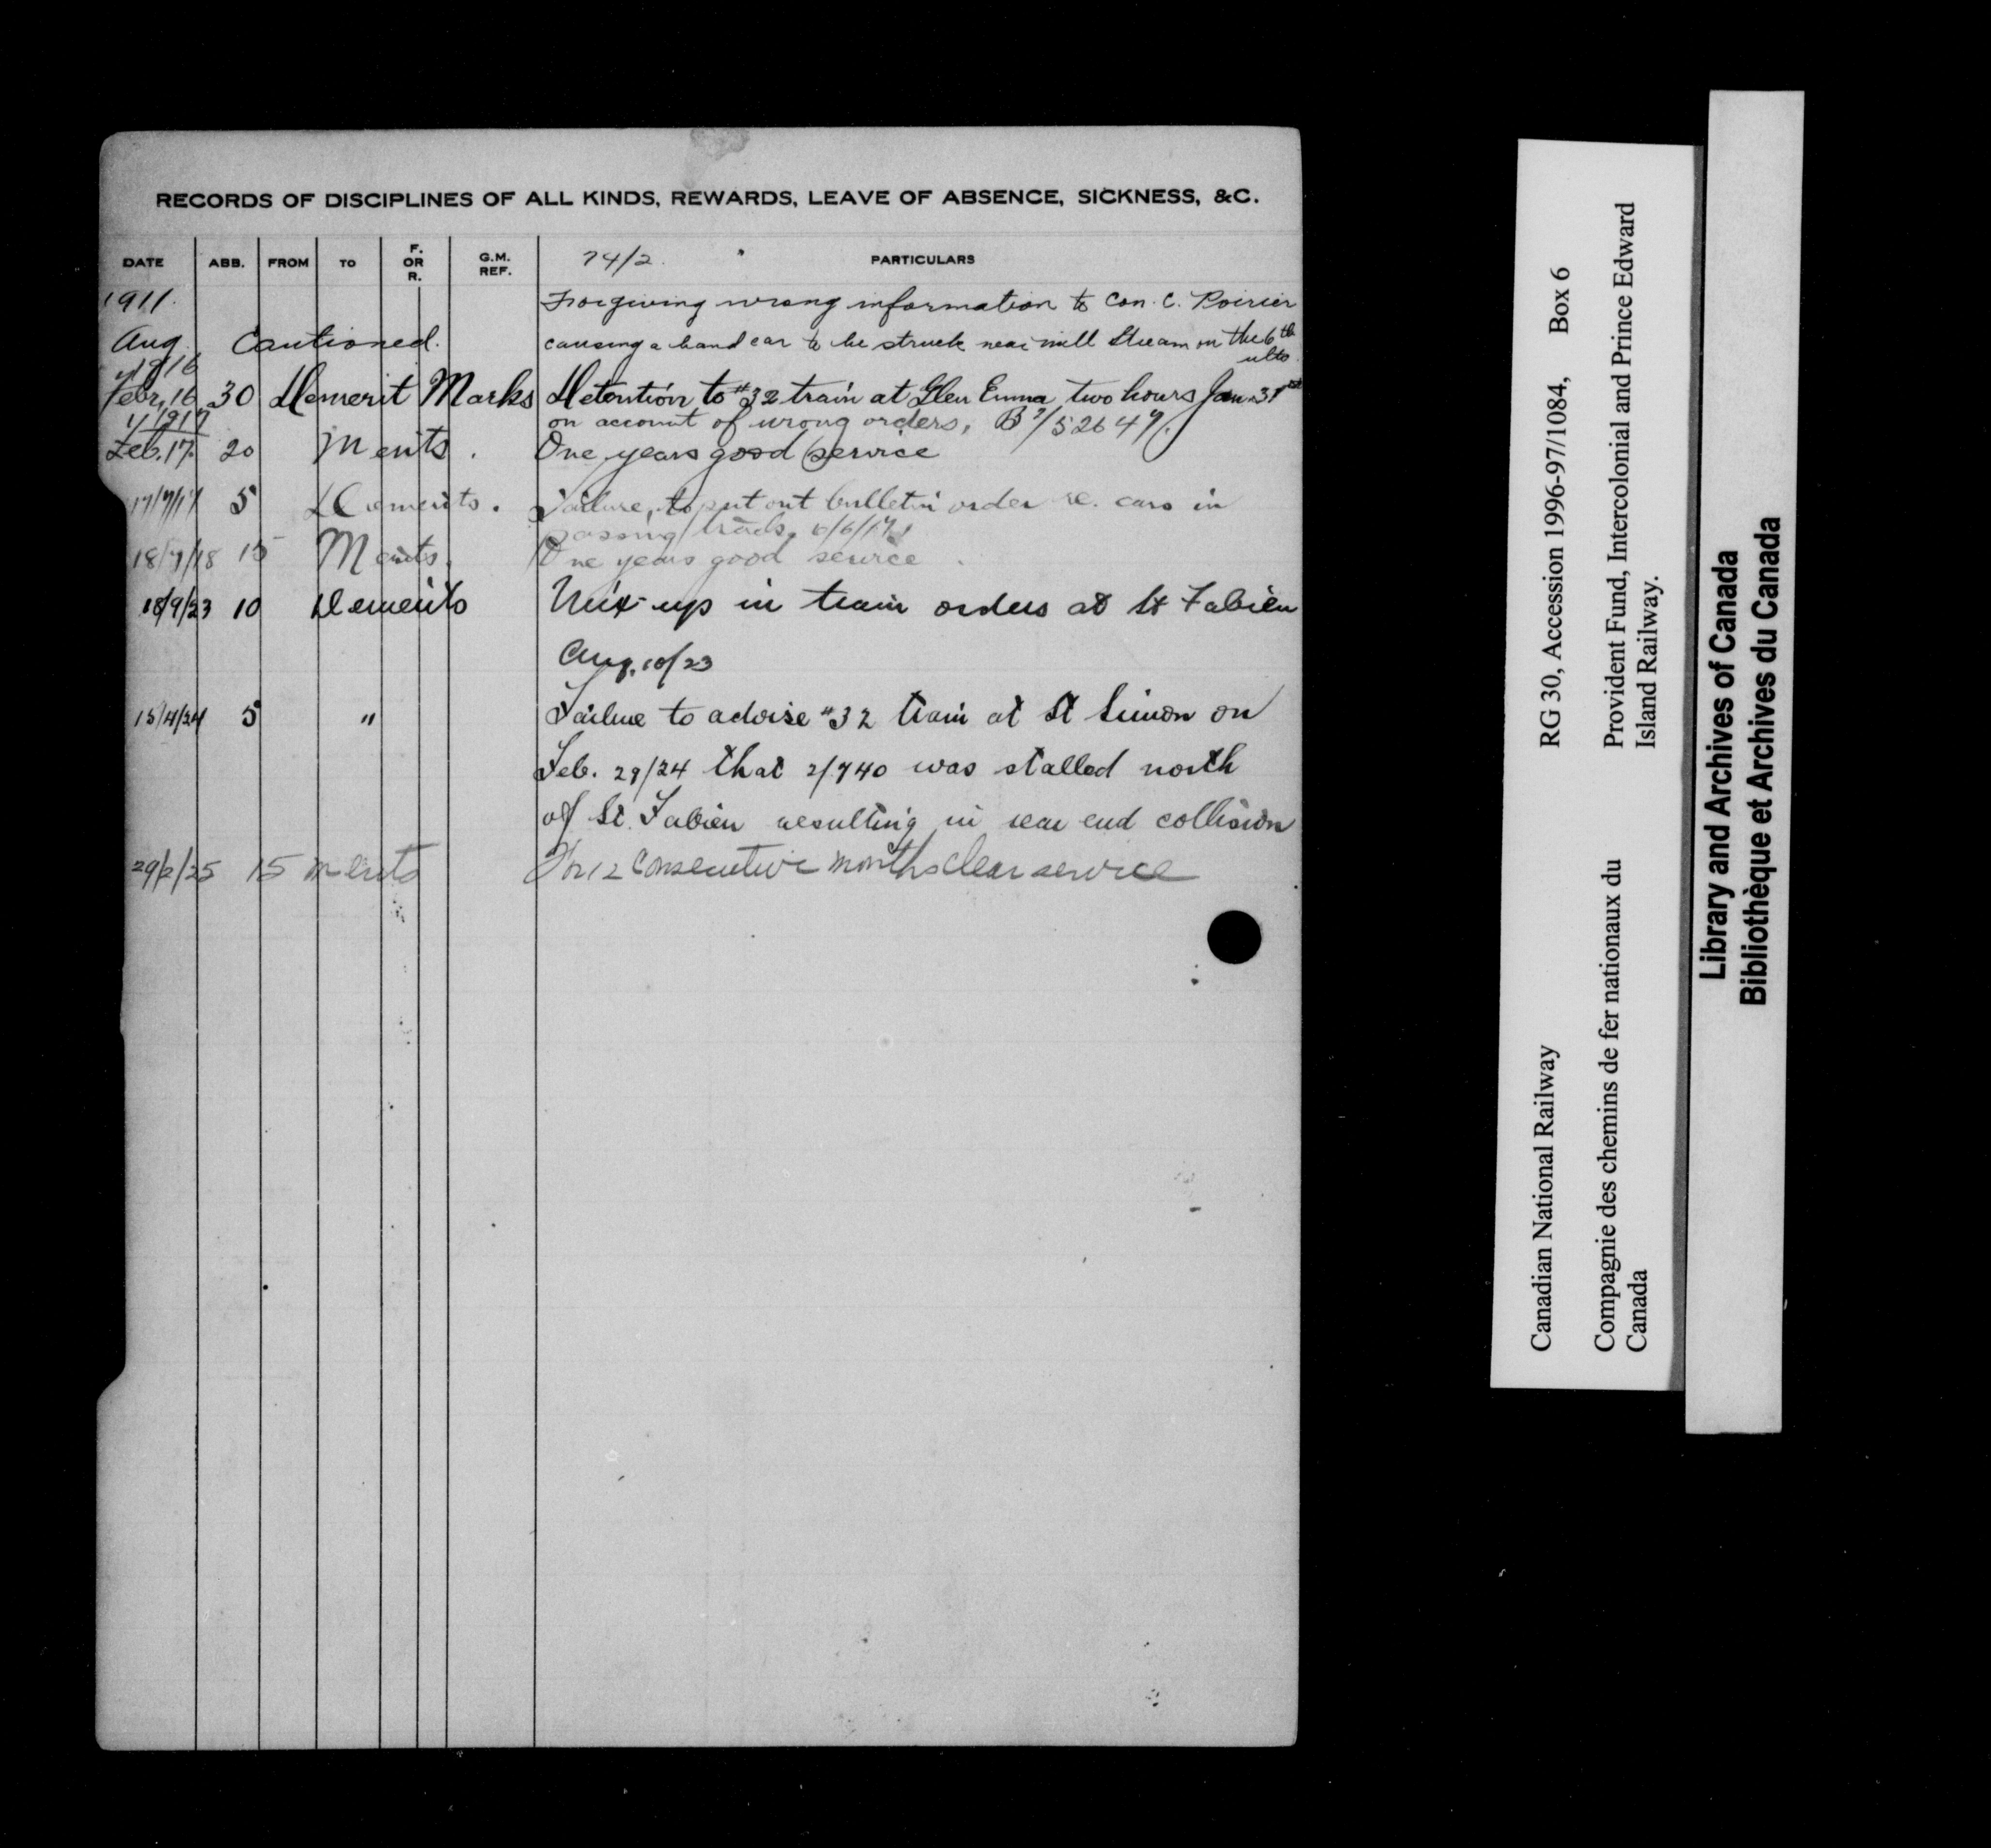 RECORDS OF DISCIPLINES OF ALL KINDS, REWARDS, LEAVE OF ABSENCE, SICKNESS, &C.
DATE ABB. FROM TO F. OR R. G.M. REF. 74/2. PARTICULARS
1911. For giving wrong information to Con. C. Poirier
Aug. Cautioned. causing a hand car to be struck near mill Stream on the 6th
ulto.
1916
Febr, 16 30 Demerit Marks Detention to #32 train at Glen Emma two hours Jan. 31st
on account of wrong orders, B7/52647.
1917
Feb. 17. 20 Merits. One years good service
17/7/17 5 Demerits. Failure, to put out bulletin order re. cars in
passing track, 6/6/17.
18/7/18 15 Merits. One years good service.
18/9/23 10 Demerits Mix-up in train orders at St Fabien
Aug. 10/23
15/4/24 5 " Failure to advise #32 train at St Simon on
Feb. 29/24 that 2/740 was stalled north
of St. Fabien resulting in rear end collision
29/2/25 15 merits For 12 Consecutive months clear service
Canadian National Railway RG 30, Accession 1996-97/1084, Box 6
Compagnie des chemins de fer nationaux du
Canada
Provident Fund, Intercolonial and Prince Edward
Island Railway.
Library and Archives of Canada
Bibliothèque et Archives du Canada